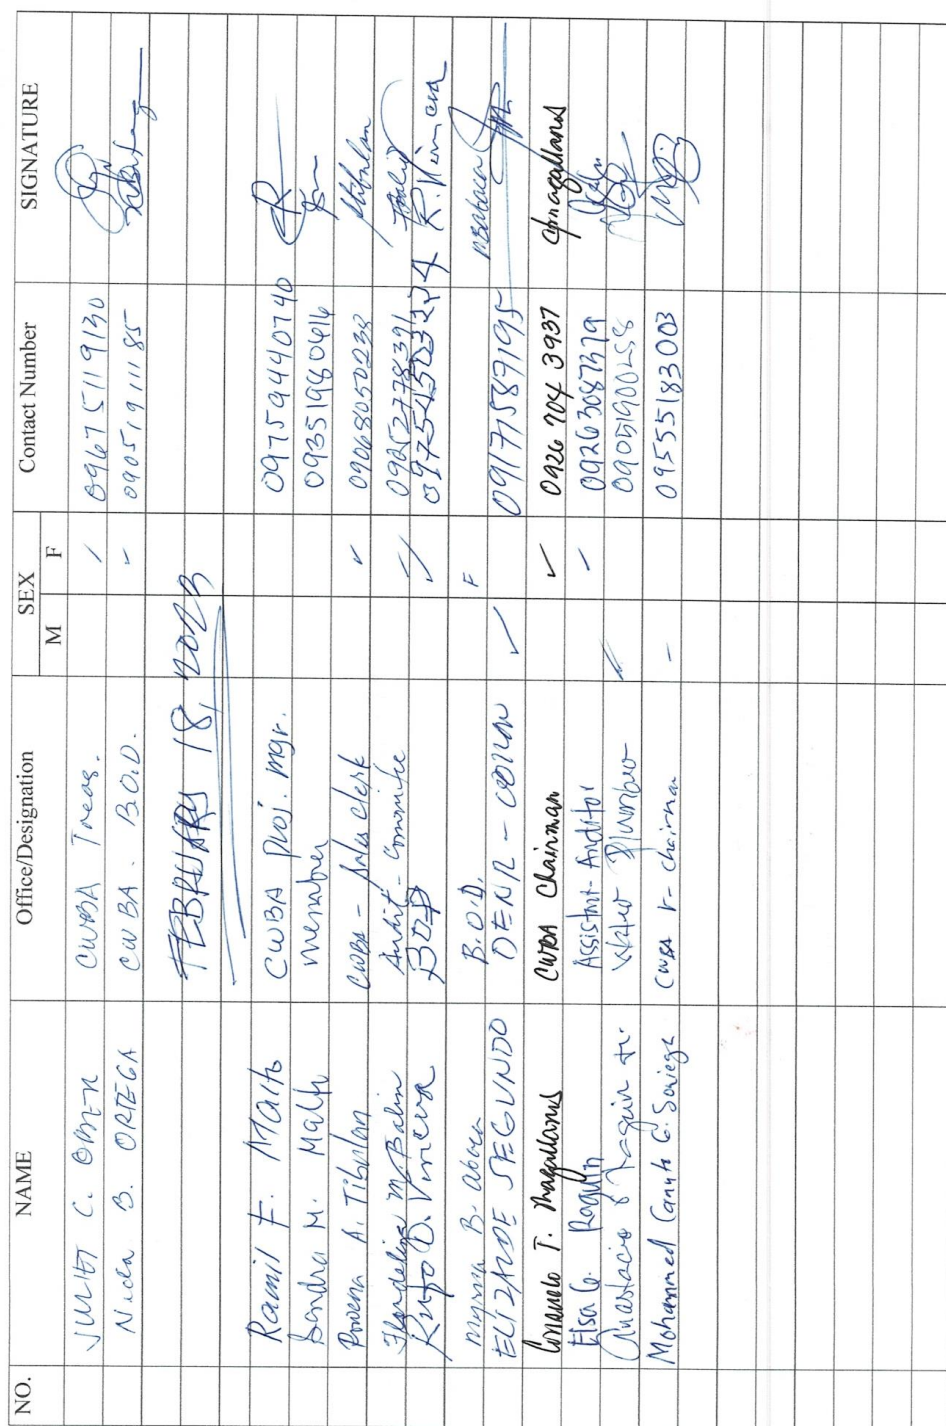 NO. NAME Office/Designation SEX M F Contact Number SIGNATURE
JULIET C. CWBA Treas. / 09675119130
Nida B. ORTEGA CWBA. B.O.D. - 09051911185
FEBRUARY 18, 2023
Ramil F. Malto CWBA proj. mgr. 09759440740
Sandra M. Malto member 09351980616
Rowena A. Tibulan CWBA - Sales clerk ✓ 09068050238 Atibulan
Flordelina M. Balin Audit - Committee ✓ 09252778391
Rufo D. Vinciva B.O.D ✓ 09754503224
Myrna B. abora B.O.D. F
ELIZALDE SEGUNDO DENR - ✓ 09171587195
Consuelo T. Magallanes CWBA Chairman ✓ 0926 704 3937 Cmagallanes
Elsa C. Raquin Assistant-Auditor - 09263087379
Anastacio Raquin Jr. Water Plumber ✓ 09051900258
Mohammed Canuto G. CWBA V-chairman - 09555183003